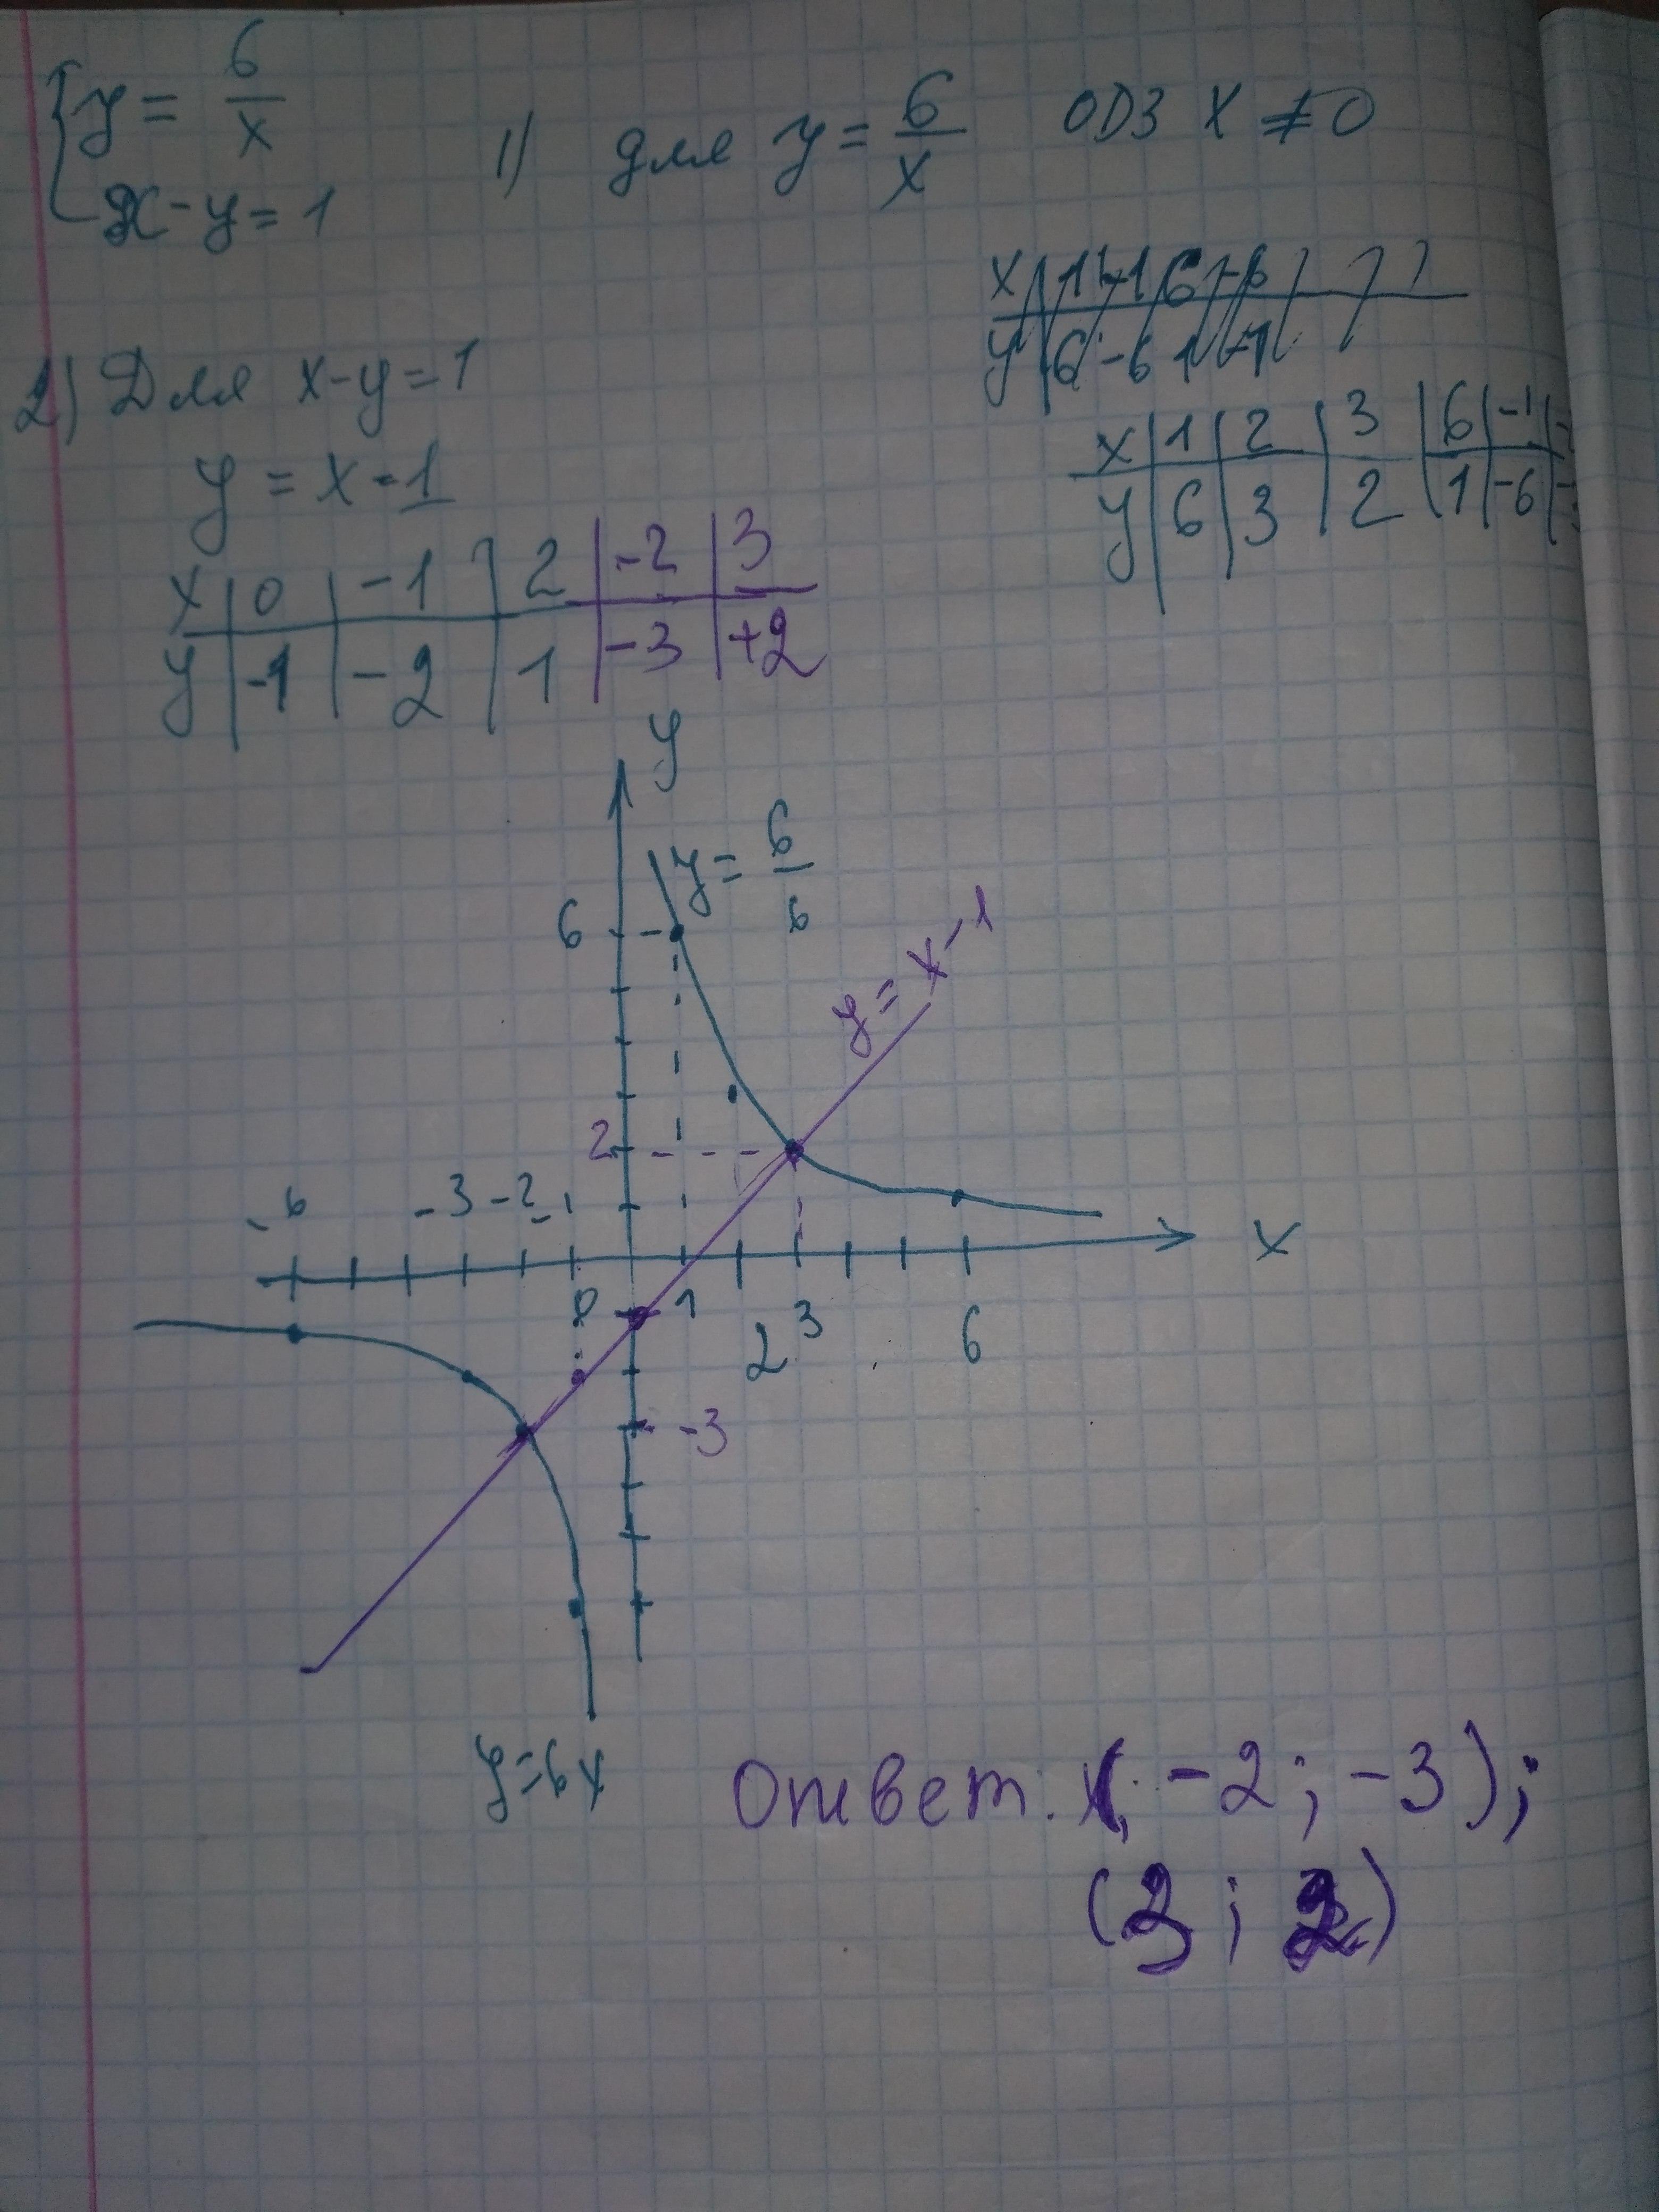 { y = 6/x
x - y = 1
1) для y = 6/x ОДЗ x ≠ 0
x | 1 | -1 | 6 | -6
y | 6 | -6 | 1 | -1
2) Для x-y=1
y = x-1
x | 1 | 2 | 3 | 6 | -1 |
y | 6 | 3 | 2 | 1 | -6 |
x | 0 | -1 | 2 | -2 | 3
y | -1 | -2 | 1 | -3 | +2
y
y = 6/6
y = x-1
6
2
-6 -3 -2 -1
x
1 2 3 6
-3
y=6x
Ответ: (-2; -3);
(3; 2)